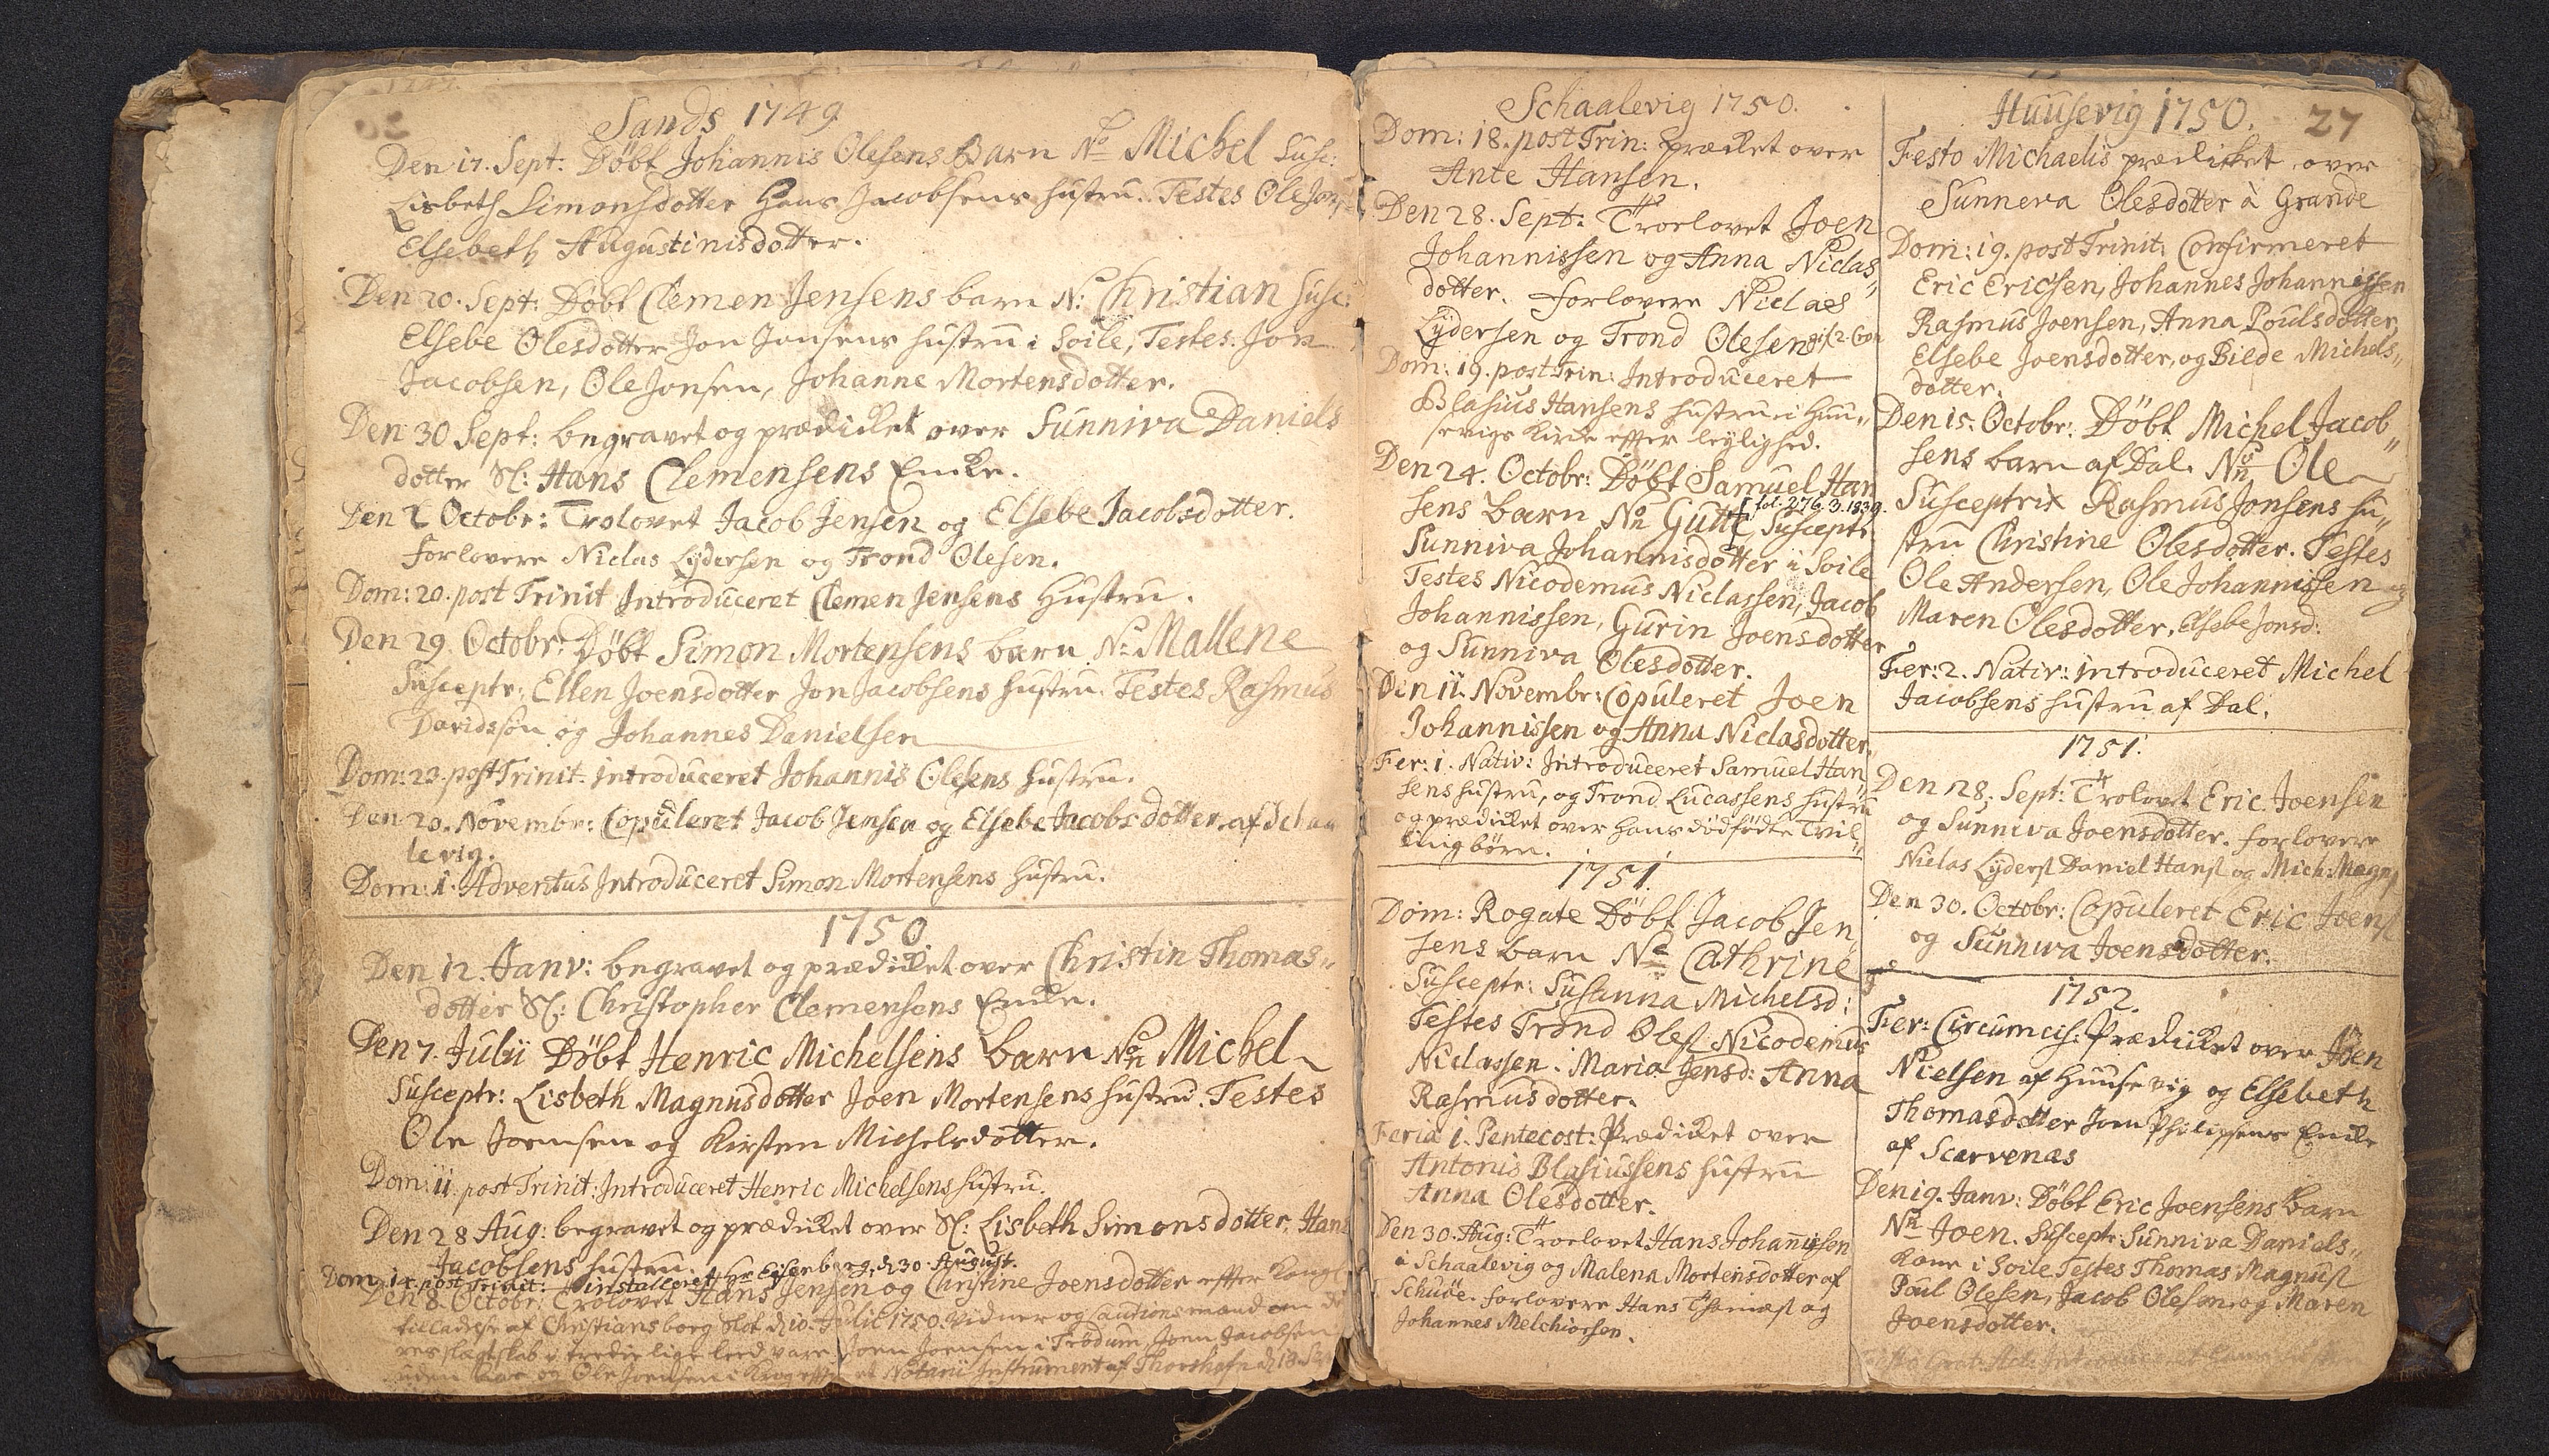 Sands 1749
Den 17. Sept: Döbt Johannis Olesens Barn No Michel Susc:
Lisbeth Simonsdotter Hans Jacobsens hustru. Testes Ole Jons
Elsebeth Augustinisdotter.
Den 20. Sept: Döbt Clemen Jensens barn N: Christian Susc:
Elsebe Olesdotter Jon Jonsens hustru i Soile, Testes. Jon
Jacobsen, Ole Jonsen, Johanne Mortensdotter.
Den 30 Sept: begravet og prædicket over Sunniva Daniels
dotter Sl: Hans Clemensens Encke.
Den 2 Octobr: Trolovet Jacob Jensen og Elsebe Jacobsdotter.
forlovere Niclas Lydersen og Trond Olesen.
Dom: 20. post Trinit Introduceret Clemen Jensens Hustru.
Den 29. Octobr: Döbt Simon Mortensens barn N: Mallene
Susceptr: Ellen Joensdotter Jon Jacobsens hustru. Testes Rasmus
Davidssön og Johannes Danielsen
Dom: 23. post Trinit. introduceret Johannis Olesens hustru.
Den 20. Novembr: Copuleret Jacob Jensen og Elsebe Jacobsdotter af Schaa
levig.
Dom: 1. Adventus Introduceret Simon Mortensens hustru.
1750
Den 12. Janv: begravet og prædicket over Christin Thomas„
dotter Sl: Christopher Clemensens Encke.
Den 7. Julii Döbt Henric Michelsens barn Non Michel
Susceptr: Lisbeth Magnusdotter Joen Mortensens hustru. Testes
Ole Joensen og Kirsten Michelsdotter.
Dom: 11. post Trinit: Introduceret Henric Michelsens hustru.
Den 28 Aug: begravet og prædicket over Sl: Lisbeth Simonsdotter, Hans
Jacobsens hustru.
Dom 14. post Trinit: installeret Hr Eisenberg, d 30. August.
Den 8. Octobr: Trolovet Hans Jensen og Christine Joensdotter efter Kongl
tilladelse af Christiansborg Slot d 10. Julii 1750. Vidner og Cautionsmænd om de
res slægtskab i tredie lige leed vare Joen Joensen i Trödum, Joen Jacobsen
og Ole Joensen i et Notarii Instrument af Thorshafn d 18
Schaalevig 1750.
Dom: 18. post Trin: prædicket over
Ante Hansen.
Den 28. Sept: Troelovet Joen
Johannissen og Anna Niclas„
dotter. forlovere Niclaes
Lydersen og Trond Olesen
Dom: 19. post Trin: Introduceret
Blasius Hansens hustru i Huu„
sevigs Kircke efter leylighed.
Den 24. Octobr: Döbt Samuel Han
sens barn Non Gutte Suscept:
fol. 276. 3. 1839.
Sunniva Johannisdotter i Soile
Testes Nicodemus Niclassen, Jacob
Johannissen, Gurin Joensdotter
og Sunniva Olesdotter.
Den 11. Novembr: Copuleret Joen
Johannissen og Anna Niclasdotter.
Fer: 1. Nativ: Introduceret Samuel Han„
sens hustru, og Trond Lucassens hustru
og prædicket over hans dödfödte Tvil„
ling börn.
1751.
Dom: Rogate Döbt Jacob Jen„
sens barn Ne Cathrine
Susceptr: Susanna Michelsd:
Testes Trond Oles Nicodemus
Niclassen. Maria Jensd: Anna
Rasmusdotter.
Feria 1. Pentecost: Prædicket over
Antonis Blasiussens hustru
Anna Olesdotter.
Den 30. Aug: Troelovet Hans Johannissen
i Schaalevig og Malena Mortensdotter af
Schuöe. forlovere Hans Thomæs og
Johannes Melchiorsen.
Huusevig 1750. 27
Festo Michaelis prædicket over
Sunneva Olesdotter à Grande
Dom: 19. post Trinit: Confirmeret
Eric Ericsen, Johannes Johannissen
Rasmus Joensen, Anna Poulsdotter,
Elsebe Joensdotter, og Bilde Michels„
dotter.
Den 15. Octobr: Döbt Michel Jacob„
sens barn af Dal. Non Ole
Susceptrix Rasmus Jonsens hu„
stru Christine Olesdotter. Testes
Ole Andersen, Ole Johannissen og
Maren Olesdotter, Elsebe Jonsd:
Fer: 2. Nativ: introduceret Michel
Jacobsens hustru af Dal.
1751.
Den 28. Sept: Trolovet Eric Joensen
og Sunniva Joensdotter. forlovere
Niclas Lyders Daniel Hans og Mich: Magn
Den 30. Octobr: Copuleret Eric Joens
og Sunniva Joensdotter.
1752.
Fer: Circumcis: Prædicket over Joen
Nielsen af Huusevig og Elsebeth
Thomasdotter Joen Philipsens Encke
af Scarvenæs
Den 19. Janv: Döbt Eric Joensens barn
Nn Joen. Susceptr: Sunniva Daniels„
kone i Soile Testes Thomas Magnus
Poul Olesen, Jacob Olesen og Maren
Joensdotter.